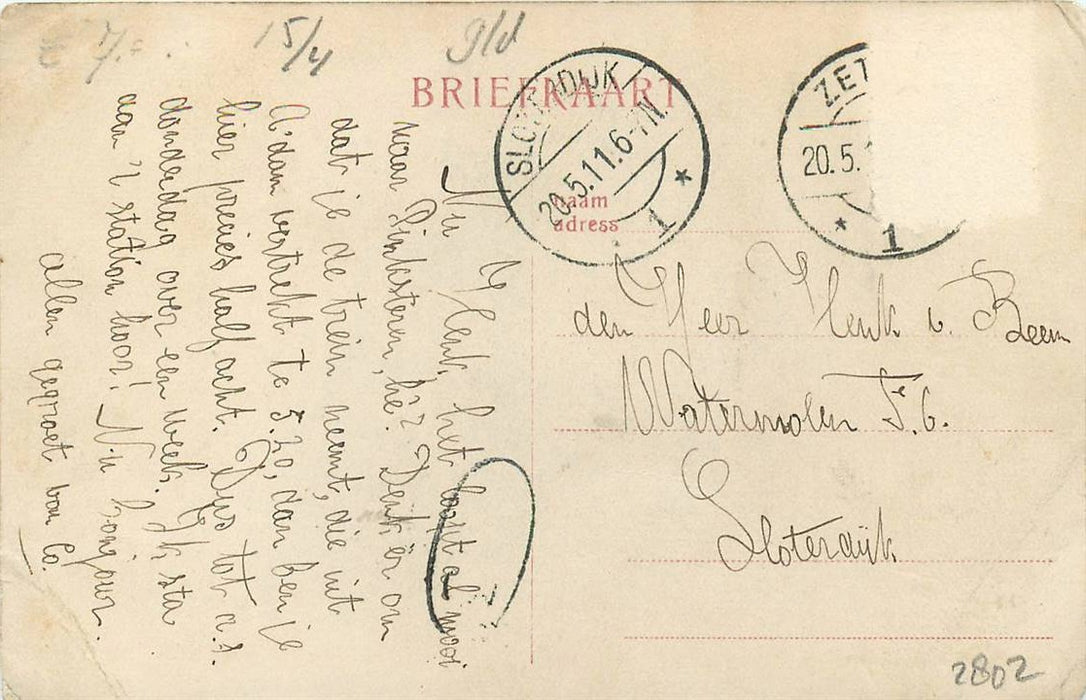 15/4
gld
BRIEFKAART
SLOTERDIJK
20.5.11.6-7N.
1
ZET
20.5.1
1
naam
adress
Nu Henk, het loopt al mooi
naar Pinksteren, hè? Denk er om
dat je de trein neemt, die uit
A'dam vertrekt te 5.20, dan ben je
hier precies half acht. Dus tot a.s.
donderdag over een week. Ik sta
aan 't station hoor! Nu bonjour.
allen gegroet van Co.
den Heer Henk v. Beem
Watermolen
Sloterdijk
2802